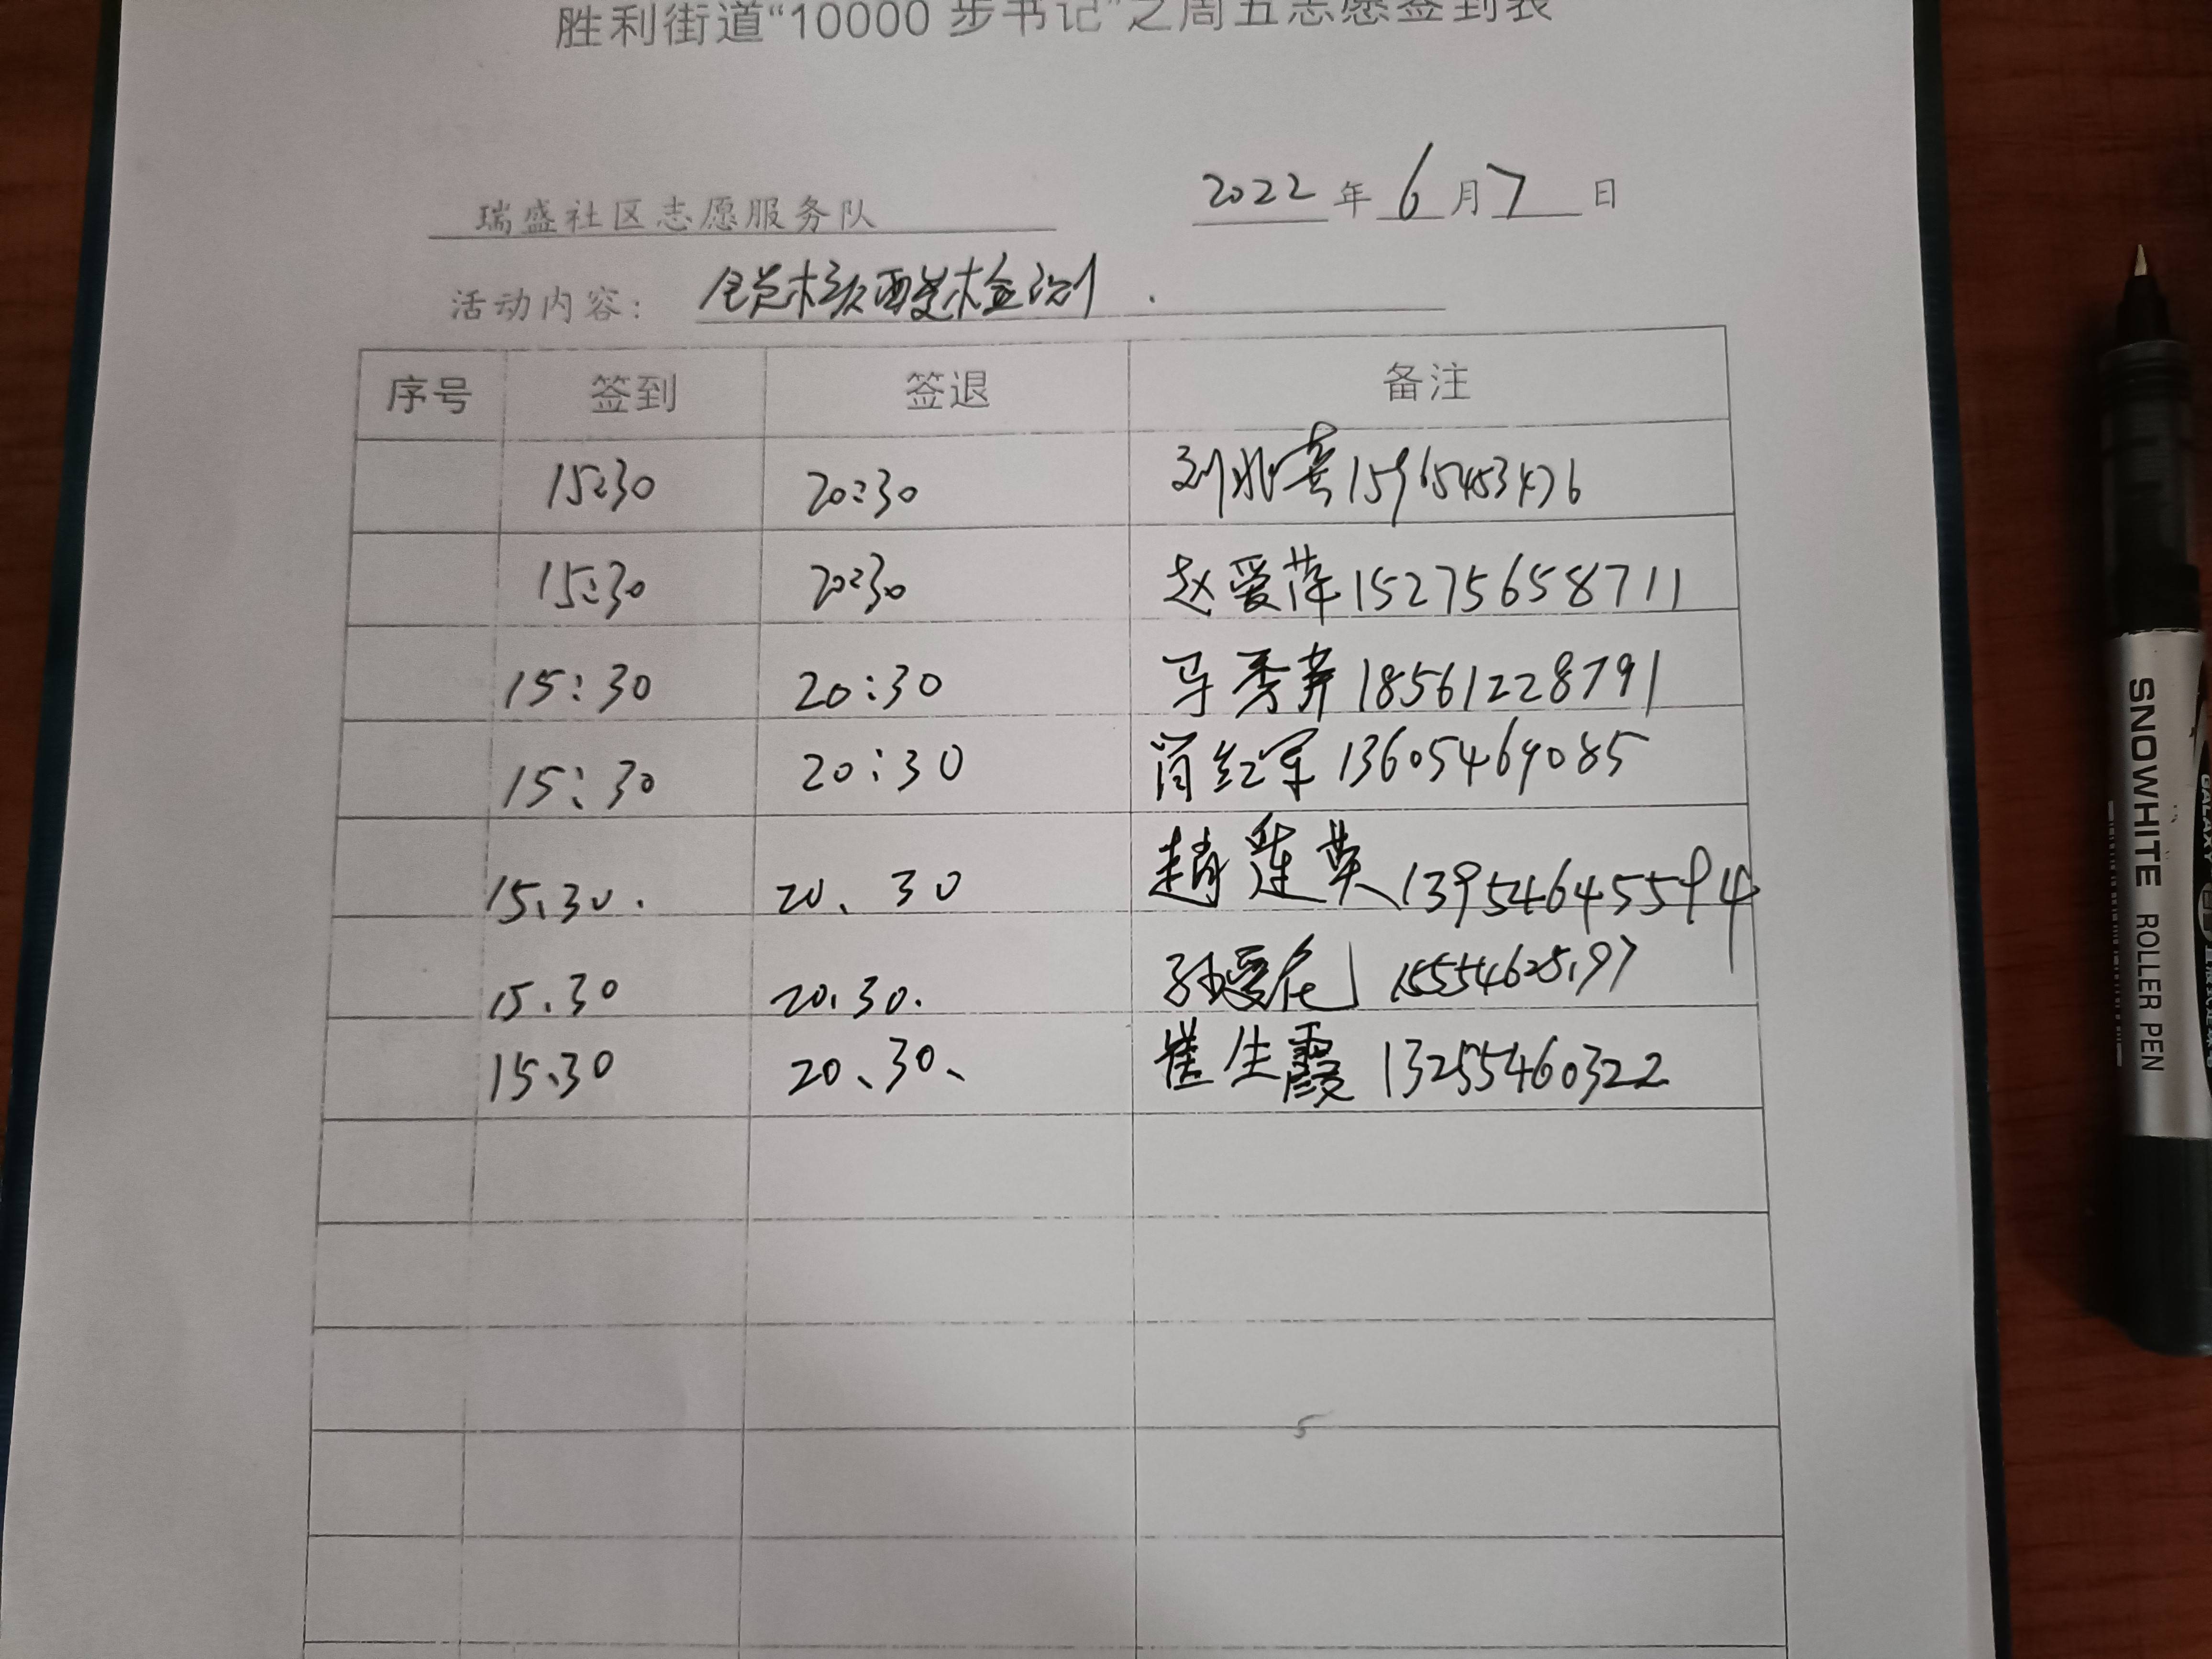 胜利街道“10000 步书记”之周五志愿签到表
瑞盛社区志愿服务队
2022 年 6 月 7 日
活动内容： 全员核酸检测.
序号 签到 签退 备注
15:30 20:30 15965453476
15:30 20:30 赵爱萍 15275658711
15:30 20:30 马秀 18561228791
15:30 20:30 肖红军 13605469085
15、30. 20、30 趙莲英 13954645594
15.30 20.30. 孙爱花 15554625197
15、30 20、30、 崔生霞 13255460322
5
SNOWHITE ROLLER PEN